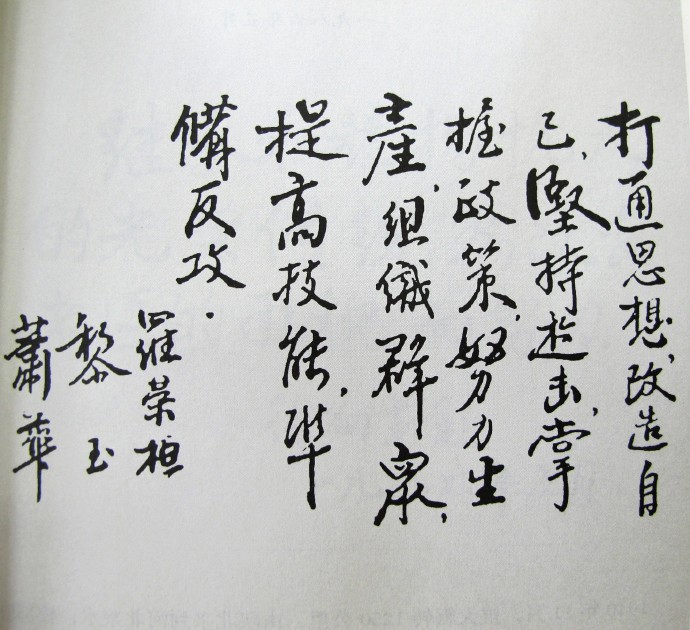 打通思想,改造自
己,堅持游击,掌
握政策,努力生
產,組織群衆,
提高技能,準
備反攻.
羅榮桓
黎玉
蕭華